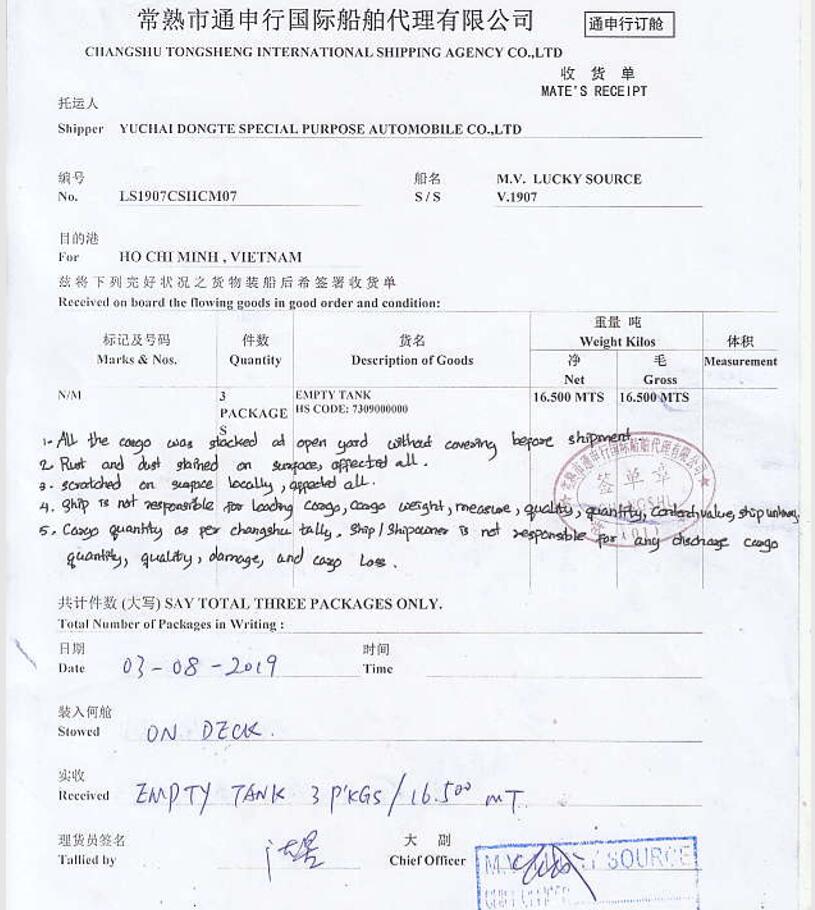 常熟市通申行国际船舶代理有限公司
通申行订舱
CHANGSHU TONGSHENG INTERNATIONAL SHIPPING AGENCY CO.,LTD
收 货 单
MATE'S RECEIPT
托运人
Shipper YUCHAI DONGTE SPECIAL PURPOSE AUTOMOBILE CO.,LTD
编号 船名 M.V. LUCKY SOURCE
No. LS1907CSHCM07 S / S V.1907
目的港
For HO CHI MINH , VIETNAM
兹将下列完好状况之货物装船后希签署收货单
Received on board the flowing goods in good order and condition:
重量 吨
标记及号码 件数 货名 Weight Kilos 体积
Marks & Nos. Quantity Description of Goods 净 毛 Measurement
Net Gross
N/M 3 EMPTY TANK 16.500 MTS 16.500 MTS
PACKAGE HS CODE: 7309000000
S
1. All the cargo was stacked at open yard without covering before shipment.
2. Rust and dust stained on surface, affected all.
3. scratched on surface locally, affected all.
4. Ship is not responsible for loading cargo, cargo weight, measure, quality, quantity, content, value, ship
5. Cargo quantity as per changshu tally. Ship/Shipowner is not responsible for any discharge cargo
quantity, quality, damage, and cargo loss.
常熟市通申行国际船舶代理有限公司
签单章
共计件数 (大写) SAY TOTAL THREE PACKAGES ONLY.
Total Number of Packages in Writing :
日期 时间
Date 03-08-2019 Time
装入何舱
Stowed ON DECK.
实收
Received EMPTY TANK 3 P'KGS/16.500 MT.
理货员签名 大 副
Tallied by Chief Officer M.V. SOURCE